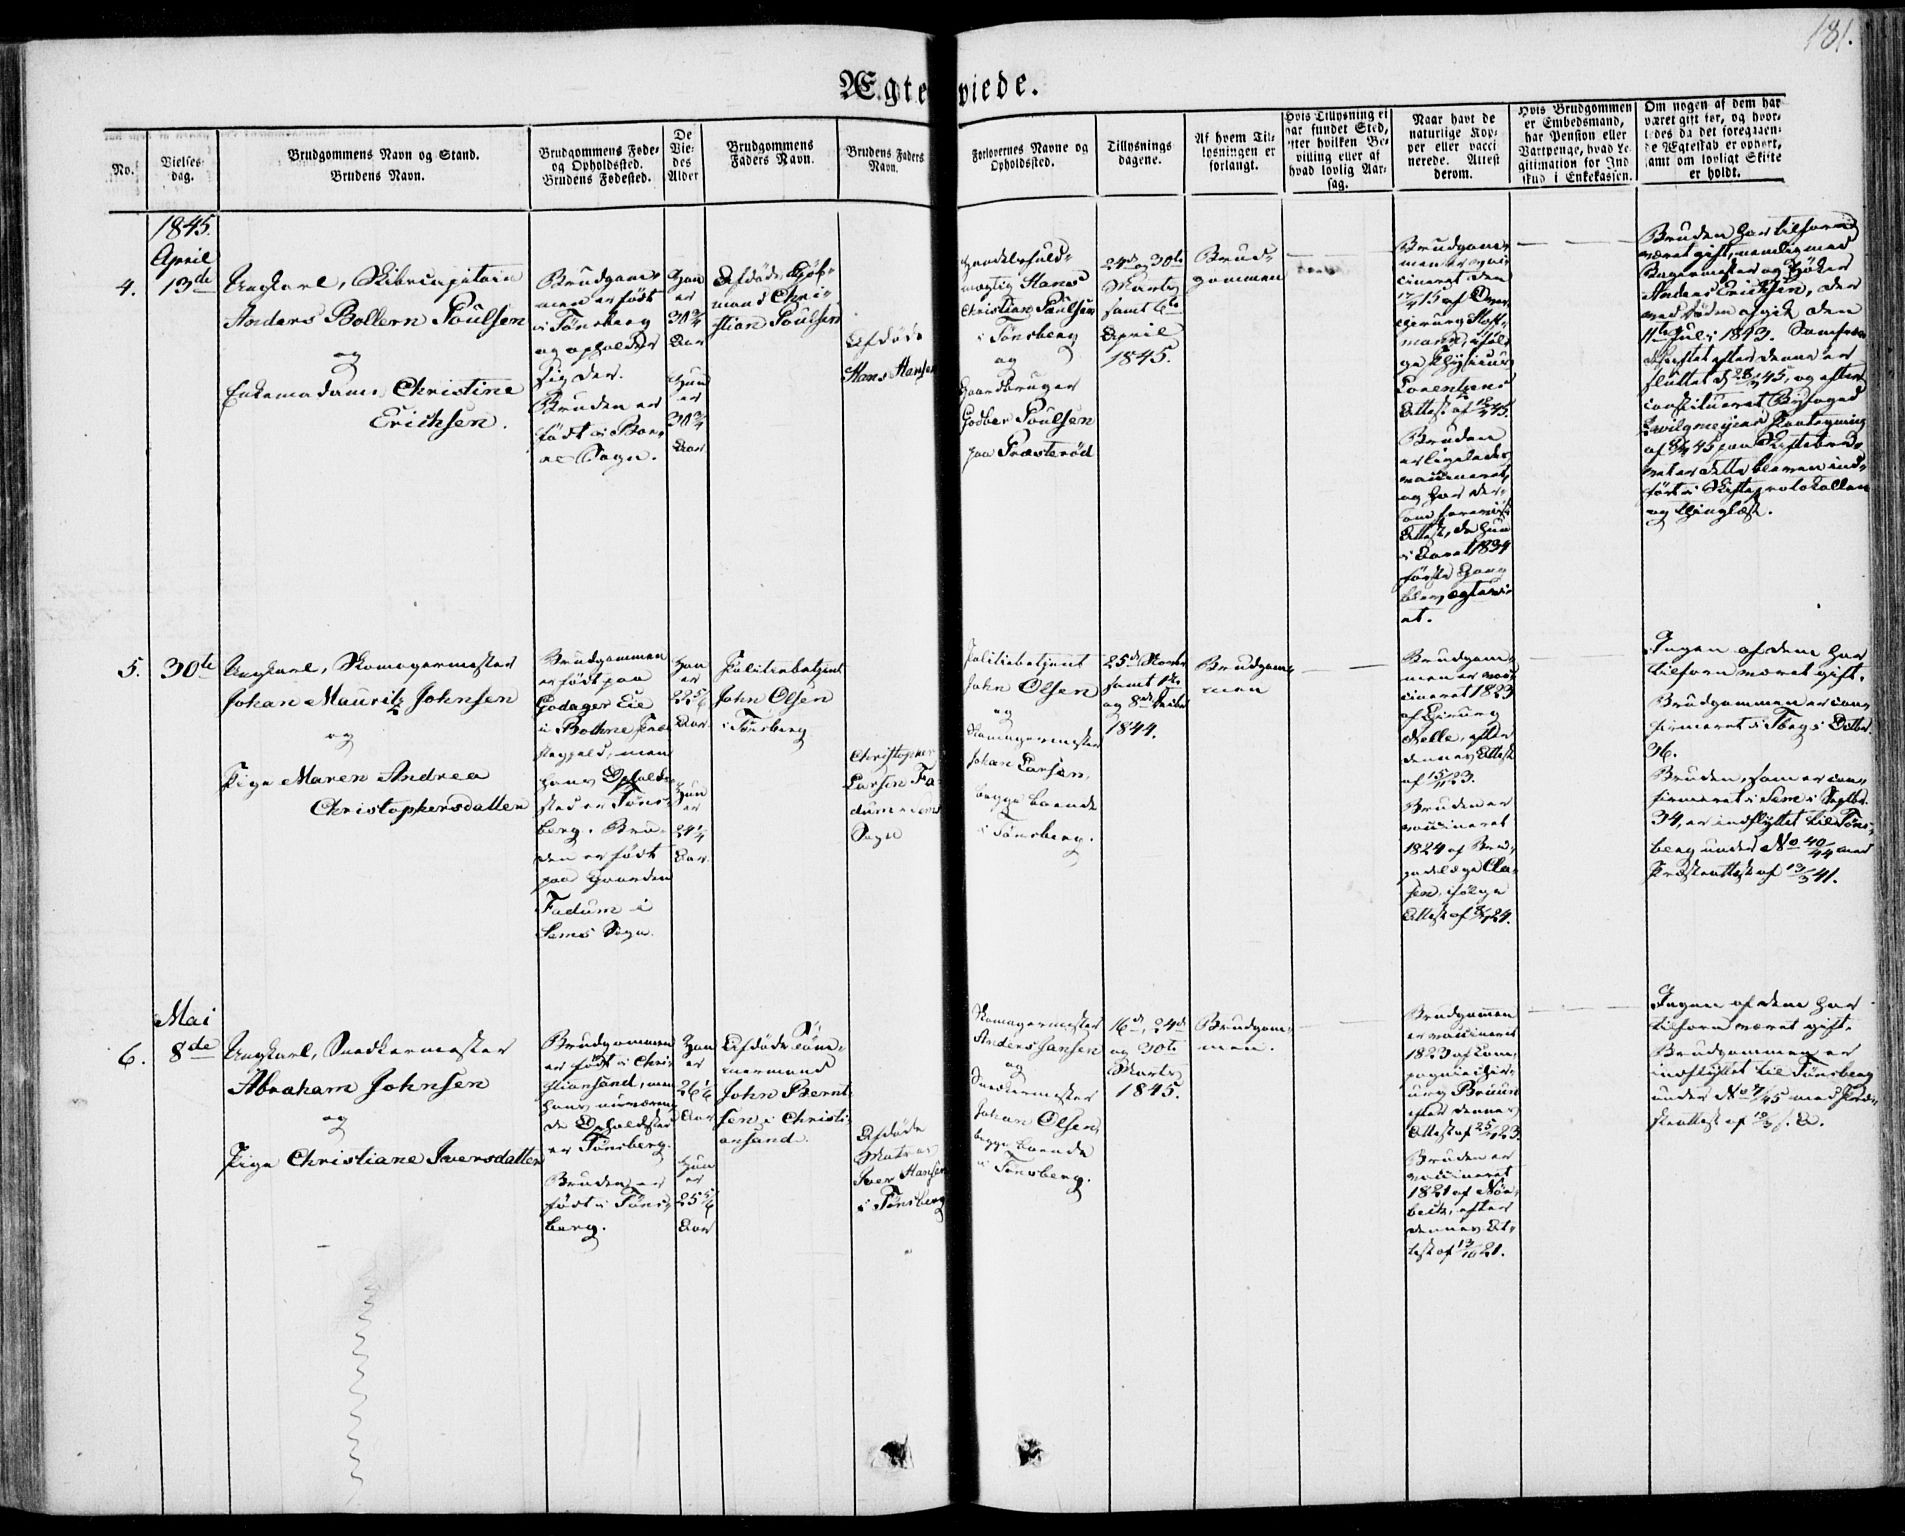 181.
Ægteviede.
No.
Vielses-
dag.
Brudgommens Navn og Stand.
Brudens Navn.
Brudgommens Føde-
og Opholdssted.
Brudens Fødested.
De
Vie-
des
Alder
Brudgommens
Faders Navn.
Brudens Faders
Navn.
Forlovernes Navne og
Opholdssted.
Tillysnings
dagene.
Af hvem Til-
lysningen er
forlangt.
Hvis Tillysning ei
har fundet Sted,
efter hvilken Be-
villing eller af
hvad lovlig Aar-
sag.
Naar havt de
naturlige Kop-
per eller vacci
nerede. Attest
derom.
Hvis Brudgommen
er Embedsmand,
har Pension eller
Vartpenge, hvad Le-
gitimation for Ind
skud i Enkekassen.
Om nogen af dem har
været gift før, og hvor-
ledes da det foregaaen-
de Ægteskab er ophørt,
samt om lovligt Skifte
er holdt.
1845.
April
4.
13de
Ungkarl, Skibscapitain
Anders Bollern Poulsen
og
Enkemadame Christine
Erichsen.
Brudgom-
men er født
i Tønsberg
og opholder
sig der.
Bruden er
født i Bor-
re Sogn.
Han
er
30 3/4
Aar
Hun
er
30 3/4
Aar
Afdøde Kjøb-
mand Chri-
stian Poulsen
Afdøde
Hans Hansen
Handelsfuld-
mægtig Hans
Christian Paulsen
i Tønsberg
og
Gaardbruger
Godber Poulsen
paa Præsterød
24de og 30te
Marts
samt 6te
April
1845.
Brud-
gommen
Brudgom-
men er vac-
cineret den
af Over-
chirurg Hoff-
mann, iføl-
ge Physicus
Lorentzens
Attest af
Bruden
er ligeledes
vaccineret,
og har der-
om foreviist
Attest, da hun
i Aaret 1834
første Gang
blev ægtevi-
et.
Bruden har tilforn
været gift, nemlig med
Bagermester og Høker
Anders Erichsen, der
ved Døden afgik den
11te Juli 1843. Samfræn-
deskiftet efter denne er
sluttet d. 45, og efter
constitueret Byfoged
Zwilgmeyers Paategning
af 45 paa Skiftebre-
vet er dette bleven ind-
ført i Skifteprotokollen
og thinglæst.
5.
30te
Ungkarl, Skomagermester
Johan Mauritz Johnsen
og
Pige Maren Andrea
Christophersdatter
Brudgommen
er født paa
Godager Eie
i Bothne Præ-
stegjeld, men
hans Opholds-
sted er Tøns-
berg. Bru-
den er født
paa Gaarden
Fadum i
Sems Sogn.
Han
er
22 5/6
Aar
Hun
er
24 1/4
Aar.
Politiebetjent
John Olsen
i Tønsberg.
Christopher
Larsen Fa-
dum i Sems
Sogn
Politiebetjent
John Olsen
og
Skomagermester
Johan Larsen,
begge boende
i Tønsberg.
25de Novbr
samt 1ste
og 8de Decbr
1844.
Brudgom-
men
Brudgom-
men er vac-
cineret 1823
af Chirurg
Nelle, efter
dennes Attest
af 23.
Bruden er
vaccineret
1824 af Bri-
gadelæge Cla-
sen, ifølge
Attest af 24.
Ingen af dem har
tilforn været gift.
Brudgommen er con-
firmeret i Tbeg i Octbr
36.
Bruden, som er con-
firmeret i Sem i Septbr.
34, er indflyttet til Tøns-
berg under No 40/44 med
Præsteattest af 41.
Mai
6.
8de
Ungkarl, Snedkermester
Abraham Johnsen
og
Pige Christiane Iversdatter
Brudgommen
er født i Chri-
stiansand, men
hans nuværen-
de Opholdssted
er Tønsberg.
Bruden er
født i Tøns-
berg.
Han
er
26 1/6
Aar
Hun
er
25 5/6
Aar
Afdøde Tøm-
mermand
John Bernt-
sen i Christi-
ansand.
Afdøde
Matros
Iver Hansen
i Tønsberg
Skomagermester
Anders Jansen
og
Snedkermester
Johan Olsen,
begge boende
i Tønsberg.
16de, 24de
og 30te
Marts
1845.
Brudgom-
men.
Brudgommen
er vaccineret
1823 af Com-
pagniechir-
urg Bruun
efter dennes
Attest af 23.
Bruden er
vaccineret
1821 af
efter
dennes At-
test af 13/10 21.
Ingen af dem har
tilforn været gift.
Brudgommen er
indflyttet til Tønsberg
under No 7/45 med Præ-
steattest af s. A.